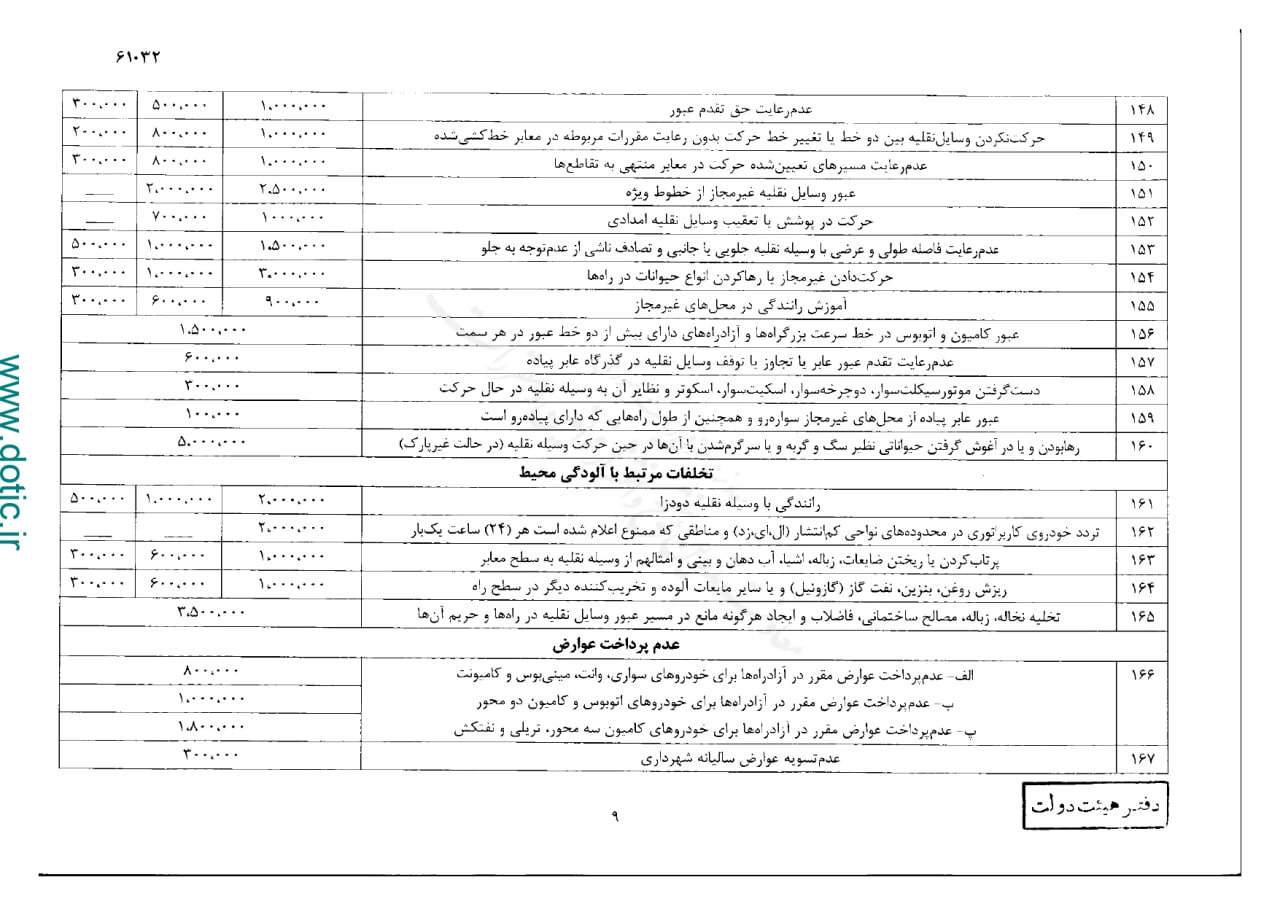 ۶۱۰۳۲
۱۴۸ عدم‌رعایت حق تقدم عبور ۱،۰۰۰،۰۰۰ ۵۰۰،۰۰۰ ۳۰۰،۰۰۰
۱۴۹ حرکت‌نکردن وسایل‌نقلیه بین دو خط یا تغییر خط حرکت بدون رعایت مقررات مربوطه در معابر خط‌کشی‌شده ۱،۰۰۰،۰۰۰ ۸۰۰،۰۰۰ ۲۰۰،۰۰۰
۱۵۰ عدم‌رعایت مسیرهای تعیین‌شده حرکت در معابر منتهی به تقاطع‌ها ۱،۰۰۰،۰۰۰ ۸۰۰،۰۰۰ ۳۰۰،۰۰۰
۱۵۱ عبور وسایل نقلیه غیرمجاز از خطوط ویژه ۲،۵۰۰،۰۰۰ ۲،۰۰۰،۰۰۰ ــــ
۱۵۲ حرکت در پوشش یا تعقیب وسایل نقلیه امدادی ۱۰۰۰،۰۰۰ ۷۰۰،۰۰۰ ــــ
۱۵۳ عدم‌رعایت فاصله طولی و عرضی با وسیله نقلیه جلویی یا جانبی و تصادف ناشی از عدم‌توجه به جلو ۱،۵۰۰،۰۰۰ ۱،۰۰۰،۰۰۰ ۵۰۰،۰۰۰
۱۵۴ حرکت‌دادن غیرمجاز یا رهاکردن انواع حیوانات در راه‌ها ۳،۰۰۰،۰۰۰ ۱،۰۰۰،۰۰۰ ۳۰۰،۰۰۰
۱۵۵ آموزش رانندگی در محل‌های غیرمجاز ۹۰۰،۰۰۰ ۶۰۰،۰۰۰ ۳۰۰،۰۰۰
۱۵۶ عبور کامیون و اتوبوس در خط سرعت بزرگراه‌ها و آزادراه‌های دارای بیش از دو خط عبور در هر سمت ۱،۵۰۰،۰۰۰
۱۵۷ عدم‌رعایت تقدم عبور عابر یا تجاوز یا توقف وسایل نقلیه در گذرگاه عابر پیاده ۶۰۰،۰۰۰
۱۵۸ دست‌گرفتن موتورسیکلت‌سوار، دوچرخه‌سوار، اسکیت‌سوار، اسکوتر و نظایر آن به وسیله نقلیه در حال حرکت ۳۰۰،۰۰۰
۱۵۹ عبور عابر پیاده از محل‌های غیرمجاز سواره‌رو و همچنین از طول راه‌هایی که دارای پیاده‌رو است ۱۰۰،۰۰۰
۱۶۰ رهابودن و یا در آغوش گرفتن حیواناتی نظیر سگ و گربه و یا سرگرم‌شدن با آن‌ها در حین حرکت وسیله نقلیه (در حالت غیرپارک) ۵،۰۰۰،۰۰۰
تخلفات مرتبط با آلودگی محیط
۱۶۱ رانندگی با وسیله نقلیه دودزا ۲،۰۰۰،۰۰۰ ۱،۰۰۰،۰۰۰ ۵۰۰،۰۰۰
۱۶۲ تردد خودروی کاربراتوری در محدوده‌های نواحی کم‌انتشار (ال‌.ای.زد) و مناطقی که ممنوع اعلام شده است هر (۲۴) ساعت یک‌بار ۲،۰۰۰،۰۰۰ ــــ ــــ
۱۶۳ پرتاب‌کردن یا ریختن ضایعات، زباله، اشیا، آب دهان و بینی و امثالهم از وسیله نقلیه به سطح معابر ۱،۰۰۰،۰۰۰ ۶۰۰،۰۰۰ ۳۰۰،۰۰۰
۱۶۴ ریزش روغن، بنزین، نفت گاز (گازوئیل) و یا سایر مایعات آلوده و تخریب‌کننده دیگر در سطح راه ۱،۰۰۰،۰۰۰ ۶۰۰،۰۰۰ ۳۰۰،۰۰۰
۱۶۵ تخلیه نخاله، زباله، مصالح ساختمانی، فاضلاب و ایجاد هرگونه مانع در مسیر عبور وسایل نقلیه در راه‌ها و حریم آن‌ها ۳،۵۰۰،۰۰۰
عدم پرداخت عوارض
۱۶۶ الف- عدم‌پرداخت عوارض مقرر در آزادراه‌ها برای خودروهای سواری، وانت، مینی‌بوس و کامیونت ۸۰۰،۰۰۰
ب- عدم‌پرداخت عوارض مقرر در آزادراه‌ها برای خودروهای اتوبوس و کامیون دو محور ۱،۰۰۰،۰۰۰
پ- عدم‌پرداخت عوارض مقرر در آزادراه‌ها برای خودروهای کامیون سه محور، تریلی و نفتکش ۱،۸۰۰،۰۰۰
۱۶۷ عدم‌تسویه عوارض سالیانه شهرداری ۳۰۰،۰۰۰
دفتر هیئت دولت
۹
www.dotic.ir